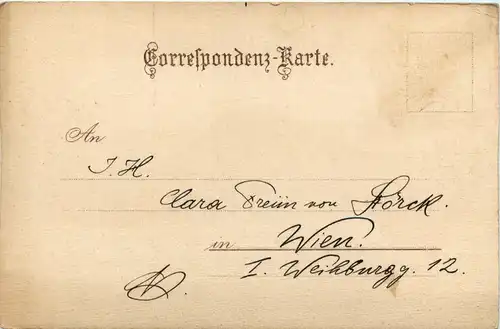 Correspondenz-Karte.
An
I. H.
Clara Freiin von Störck.
in Wien.
I. Weihburgg. 12.